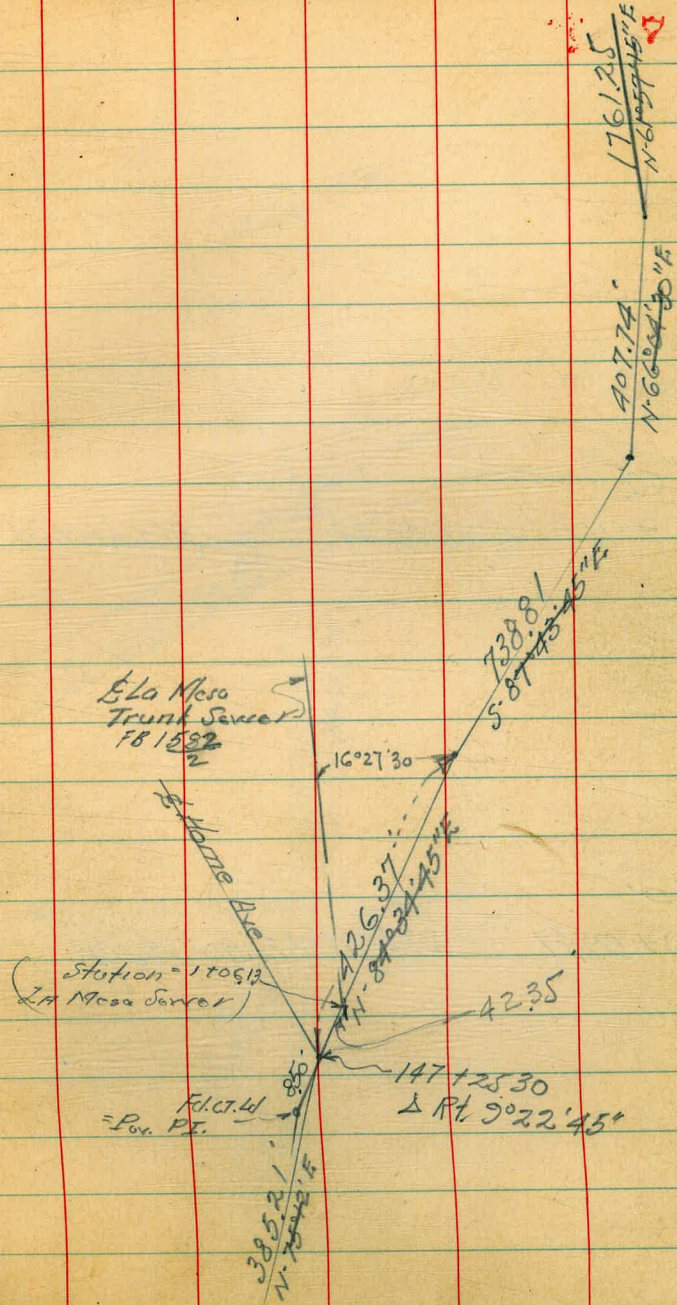 1761.25
N-61°57'45"E
407.74'
N-66°04'30"E
738.81
S-87°43'45"E
℄ La Mesa
Trunk Sewer
FB 1582
2
16°27'30
℄ Home Ave
426.37
N-84°34'45"E
Station = 1+06.13
(La Mesa Sewer)
42.35
147+25.30
Δ Rt. 9°22'45"
8.50
Fd.CT.Ld
=Pav. P.I.
385.21'
N-75°12'E